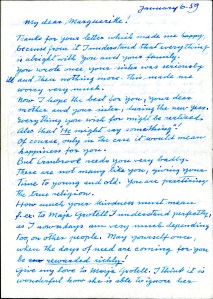 January 6-59
My dear Marguerite!
Thanks for your letter which made me happy,
because from it I understand that everything
is alright with you and your family.
You wrote once your sister was seriously
ill and then nothing more. This made me
worry very much.
Now I hope the best for you, your dear
mother and your sister, during the new year.
Everything you wish for might be realized.
Also that He might say something!
Of course, only in the case it would mean
happiness for you!
But Cranbrook needs you very badly.
There are not many like you, giving your
time to young and old. You are practising
the true religion.
How much your kindness must mean
to Maja Grotell I understand perfectly,
as I nowadays am very much depending
too, on other people. May yourself once
when the days of need are coming, for you
be rewarded richly!
Give my love to Maija Grotell. I think it is
wonderful how she is able to ignore her